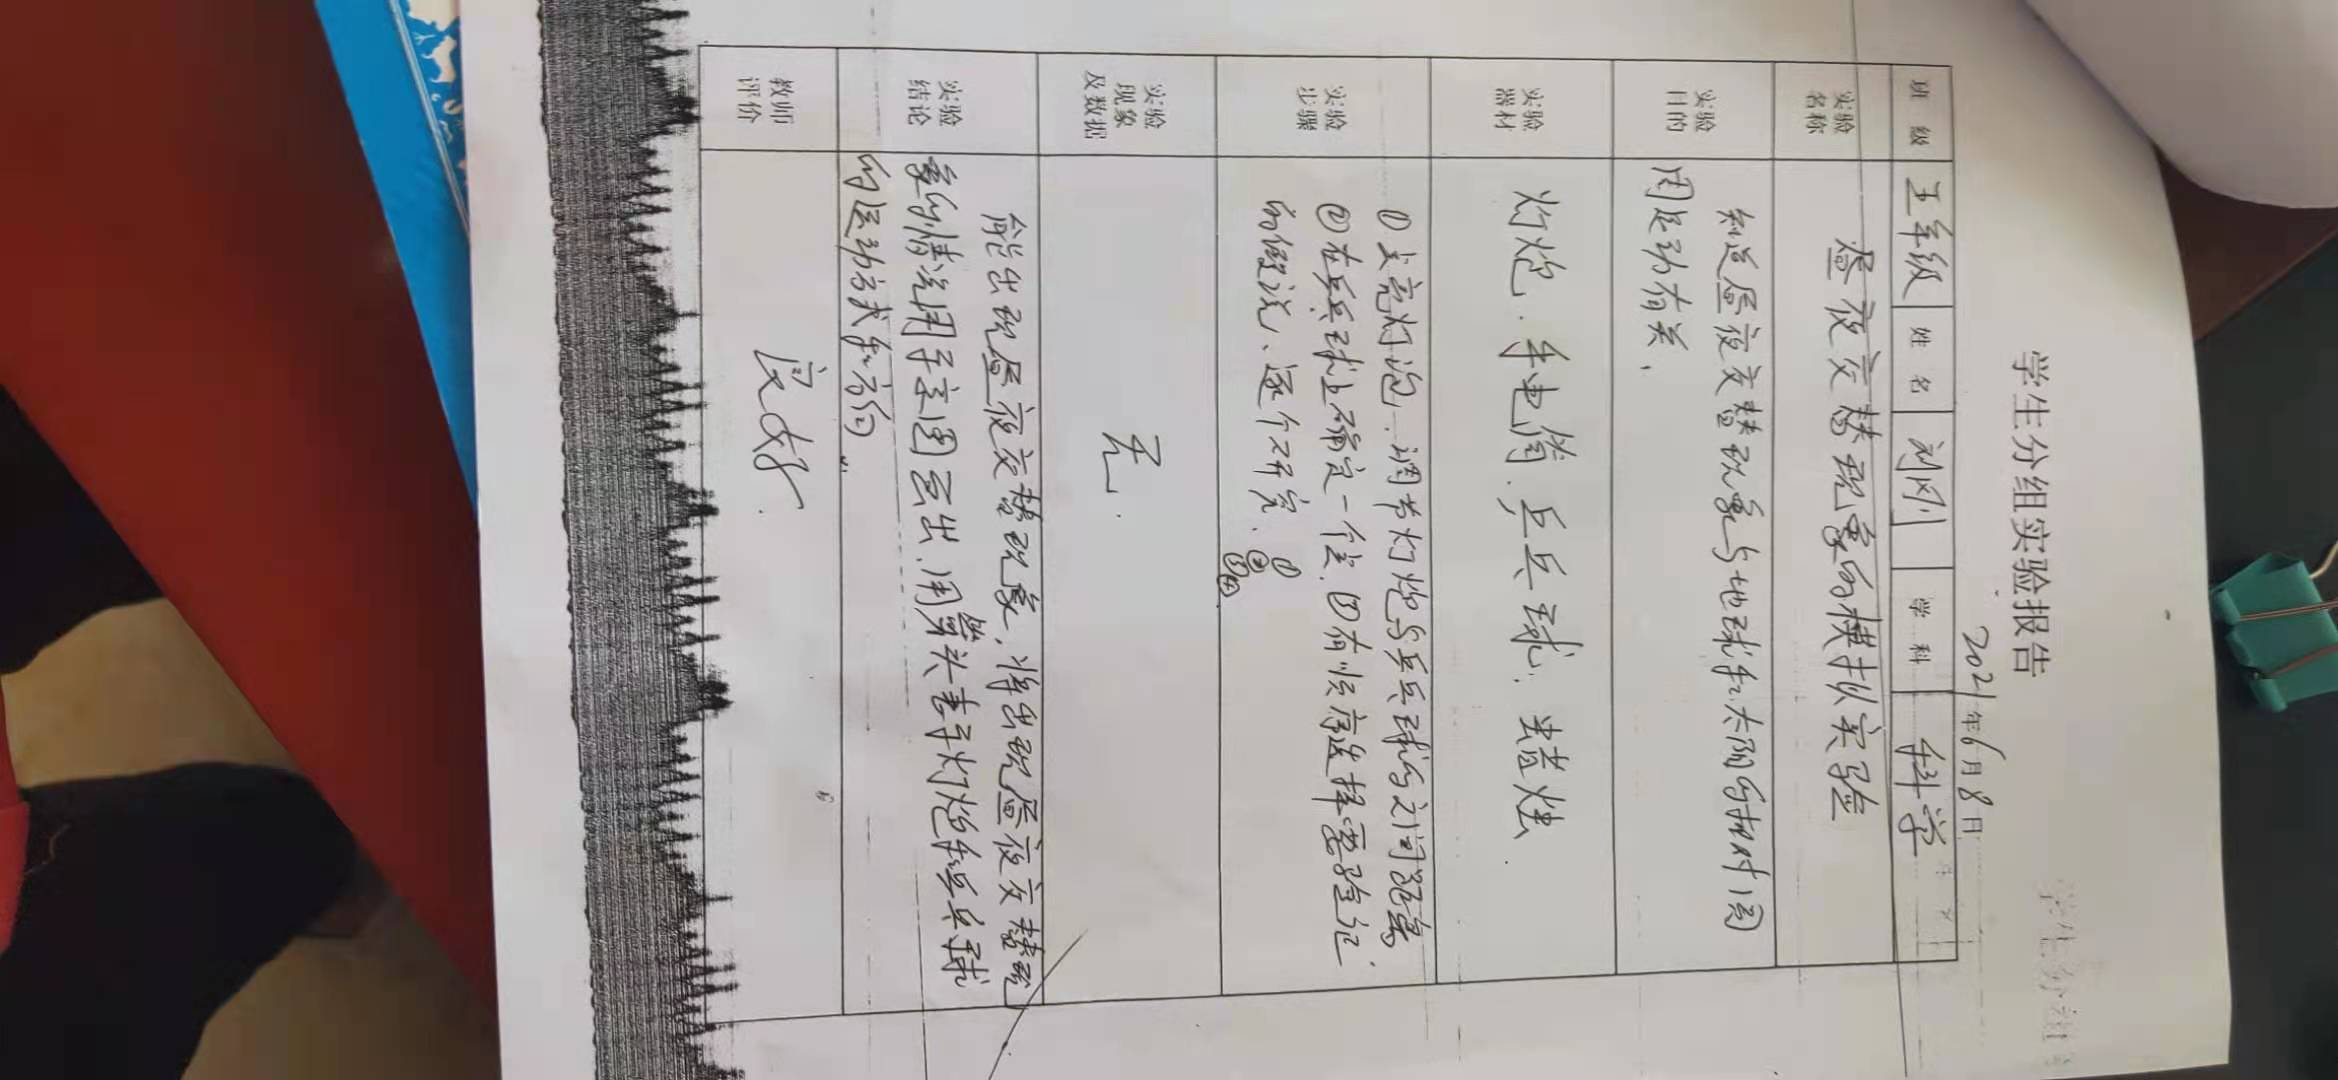 学生分组实验报告
2021年6月8日
班 级 五年级 姓 名 刘刚 学 科 科学
实验名称 昼夜交替现象的模拟实验
实验目的 知道昼夜交替现象与地球和太阳的相对圆
周运动有关.
实验器材 灯炮、手电筒、乒乓球、蜡烛.
实验步骤 ①点亮灯泡、调节灯炮与乒乓球的之间距离
②在乒乓球上确定一位、①有顺序选择需验证
的假说、逐个研究.
①
②
③④
实验现象及数据 无.
实验结论 能出现昼夜交替现象、将出现昼夜交替现
象的情况用示意图画出、用箭头表示灯炮和乒乓球
的运动方式和方向
教师评价 良好.
学生分组